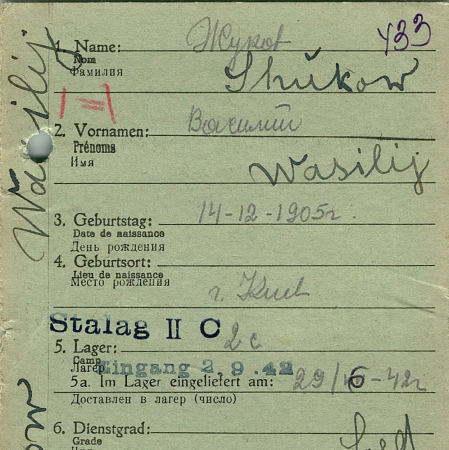 1. Name: Жуков 433
Nom
Фамилия
Shukow
2. Vornamen: Василий
Prénoms
Имя
Wasilij
Wasilij
3. Geburtstag: 14-12-1905г.
Date de naissance
День рождения
4. Geburtsort:
Lieu de naissance
Место рождения
г. Киев
Stalag II C
5. Lager: 2c
Camp
Лагерь
Eingang 2.9.42
5a. Im Lager eingeliefert am: 29/6-42г
Доставлен в лагерь (число)
6. Dienstgrad:
Grade